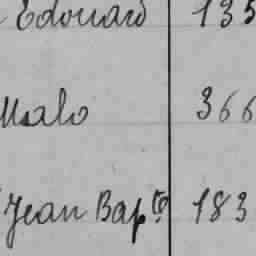 Edouard 135
Malo 366
Jean Bapte 183